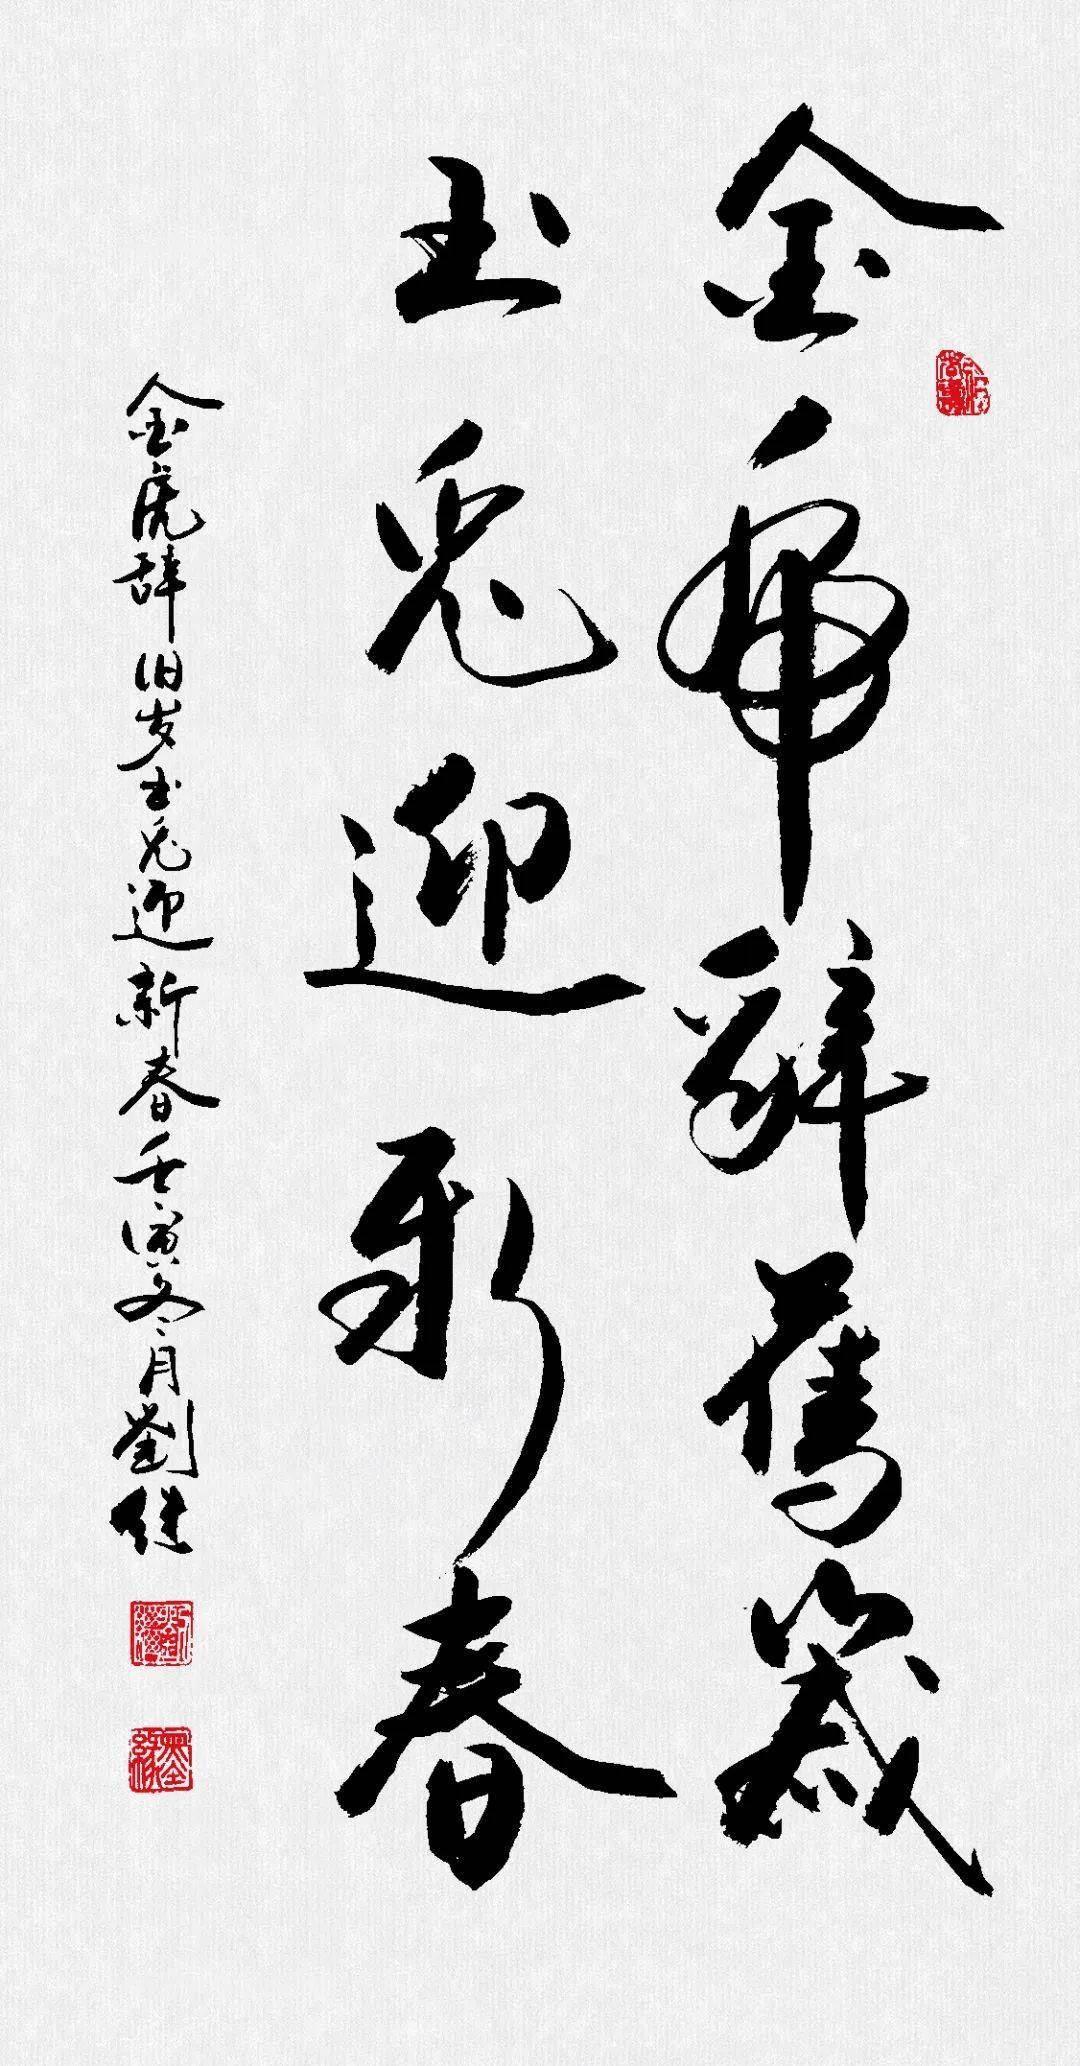 金虎辭舊歲
玉兔迎新春
金虎辞旧岁玉兔迎新春壬寅冬月劉